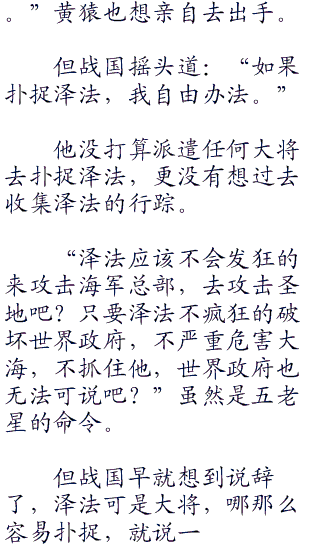 。”黄猿也想亲自去出手。
但战国摇头道：“如果
扑捉泽法，我自由办法。”
他没打算派遣任何大将
去扑捉泽法，更没有想过去
收集泽法的行踪。
“泽法应该不会发狂的
来攻击海军总部，去攻击圣
地吧？只要泽法不疯狂的破
坏世界政府，不严重危害大
海，不抓住他，世界政府也
无法可说吧？”虽然是五老
星的命令。
但战国早就想到说辞
了，泽法可是大将，哪那么
容易扑捉，就说一